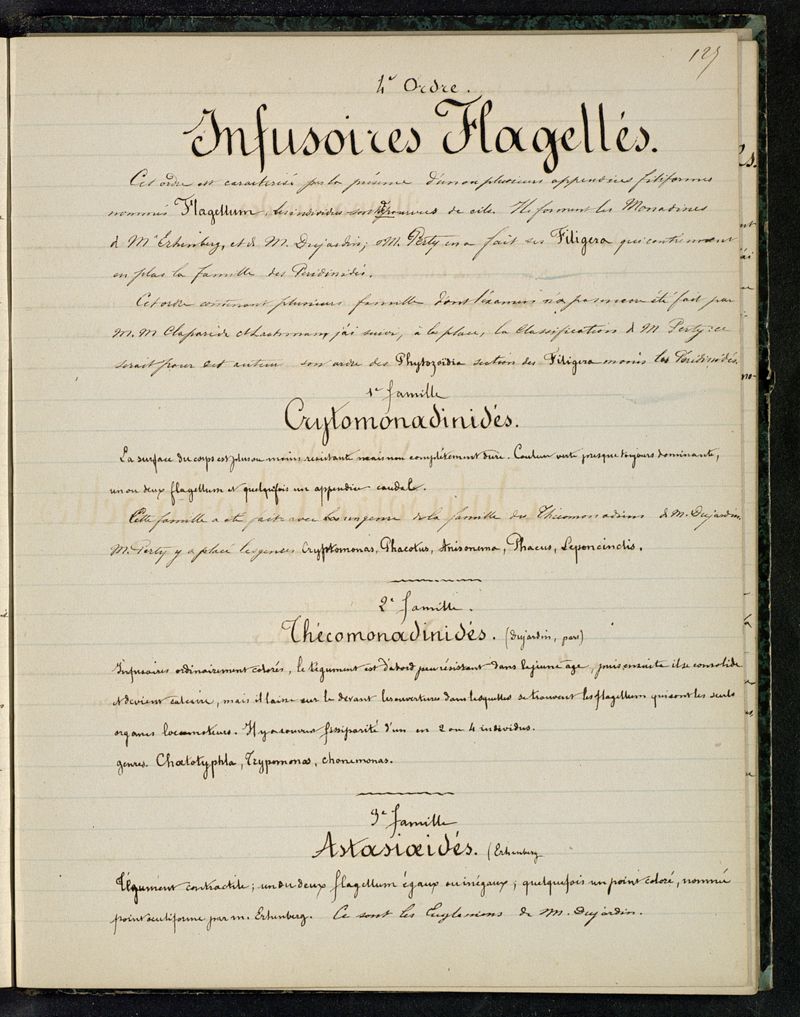 125
4e Ordre.
Infusoires Flagellés.
Cet ordre est caractérisé par la présence d'un ou plusieurs appendices filiformes
nommés Flagellum, les infusoires sont dépourvus de cils. Ils forment les Monadines
d Mr Erhenberg, et de M. Dujardin; M. Perty en a fait ses Filigera qui contiennent
en plus la famille des Peridinidés.
Cet ordre contenant plusieurs famille dont l'examen n'a pas encore été fait par
M.M Claparide et Lachmann, j'ai suivi, à la place, la classification d M Perty: ce
serait pour cet auteur son ordre des Phytozoïdia section des Filigera moins les Péridinidés.
1e famille
Crytomonadinidés.
La surface du corps est plus ou moins résistante mais non complètement dure. Couleur verte presque toujours dominante,
un ou deux flagellum et quelquefois un appendice caudal.
Cette famille a été faite avec de la famille des Thécomonadiens de M. Dujardin.
M. Perty y a placé les genres Cryptomonas, Phacotus, Anisonema, Phacus, Lepocinclis.
2e famille.
Thécomonadinidés. (Dujardin, pars)
Infusoires ordinairement colorés, le tégument est d'abord peu résistant dans le jeune age, puis ensuite il se consolide
et devient calcaire, mais il laisse sur le devant les ouvertures dans lesquelles se trouvent les flagellum qui sont les seuls
organes locomoteurs. Il y a souvent fissiparité d'un en 2 ou 4 individus.
genres. Chœtotyphla, Trypomonas, chonemonas.
3e famille
Astasiœidés. (Erhenberg
Tégument contractile; un ou deux flagellum égaux ou inégaux; quelquefois un point coloré, nommé
point oculiforme par m. Erhenberg. Ce sont les Eugleniens de M. Dujardin.